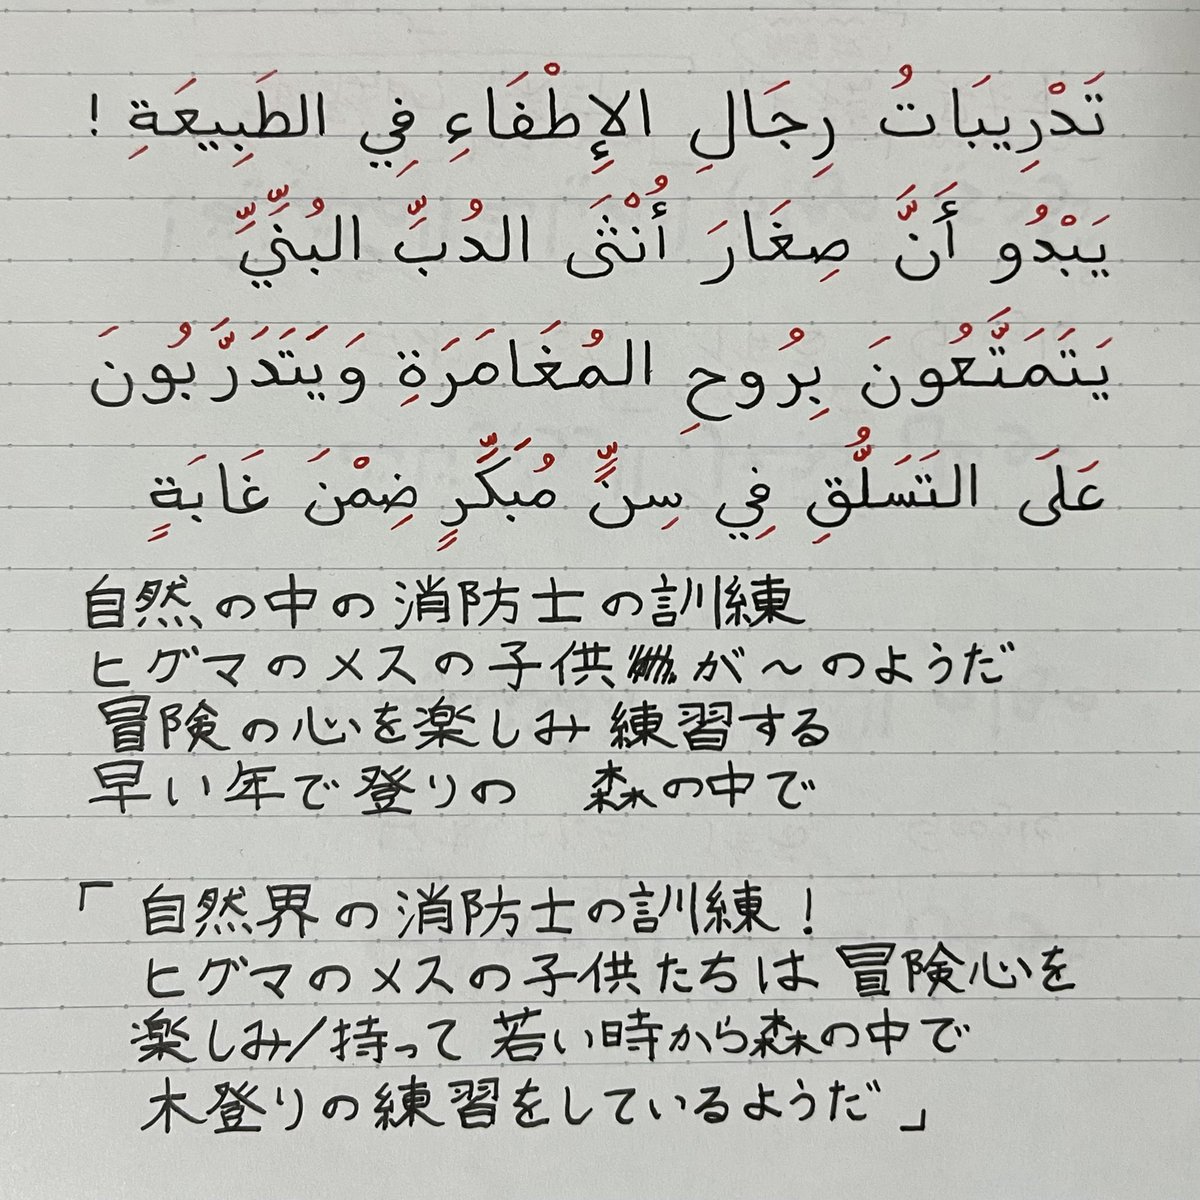 تَدْرِيبَاتُ رِجَالِ الإِطْفَاءِ فِي الطَبِيعَةِ !
يَبْدُو أَنَّ صِغَارَ أُنْثَى الدُبِّ البُنِّيِّ
يَتَمَتَّعُونَ بِرُوحِ المُغَامَرَةِ وَيَتَدَرَّبُونَ
عَلَى التَسَلُّقِ فِي سِنٍّ مُبَكِّرٍ ضِمْنَ غَابَةٍ
自然の中の消防士の訓練
ヒグマのメスの子供が〜のようだ
冒険の心を楽しみ 練習する
早い年で登りの 森の中で
「自然界の消防士の訓練！
ヒグマのメスの子供たちは冒険心を
楽しみ/持って若い時から森の中で
木登りの練習をしているようだ」